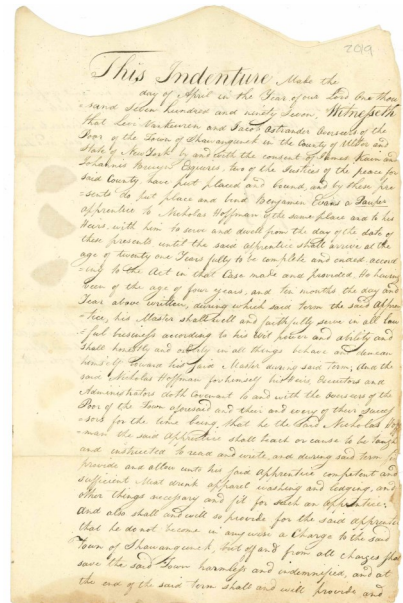 2019
This Indenture Make the
day of April in the Year of our Lord One thou
=sand Seven hundred and ninety Seven, Witnesseth
that Levi Vankeuren and Jacob Ostrander Overseers of the
Poor of the Town of Shawangunck in the County of Ulster and
State of New York by and with the consent of James Kain and
Johannis Bruyn Esquires, two of the Justices of the peace for
said County, have put placed and bound, and by these pre=
=sents do put place and bind Benjamin Evans a Pauper
apprentice to Nicholas Hoffman of the same place and to his
Heirs, with him to serve and dwell from the day of the date of
these presents until the said apprentice shall arrive at the
age of twenty one Years fully to be complete and ended accord
=ing to the Act in that Case made and provided. He having
been of the age of four years, and ten months the day and
Year above written, during which said term the said Appren
=tice, his Master shall well and faithfully serve in all law
=ful business according to his wit power and ability and
Shall honestly and orderly in all things behave and demean
himself toward his said Master during said Term; And the
said Nicholas Hoffman for himself his Heirs Executors and
Administrators doth Covenant to and with the Overseers of the
Poor of the Town aforesaid and their and every of their Succes
=sors for the time being, that he the said Nicholas Hoff
=man the said Apprentice shall teach or cause to be taught
and instructed to read and write, and during said term
provide and allow unto his said apprentice competent and
sufficient Meat drink apparel washing and lodging, and
other things necessary and fit for such an apprentice;
And also shall and will so provide for the said apprentice
that he do not become in any wise a Charge to the said
Town of Shawangunck, but of and from all charges shall
save the said Town harmless and indemnified, and at
the end of the said term shall and will provide and